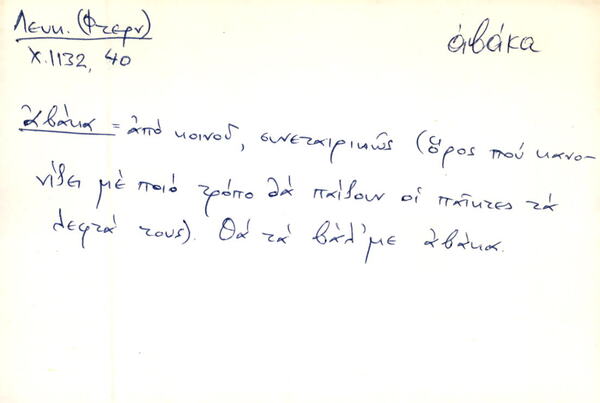 Λευκ. (Φτερν)
χ. 1132, 40
ἀβάκα
ἀβάκα = ἀπό κοινοῦ, συνεταιρικῶς (ὅρος πού κανο-
νίζει μέ ποιό τρόπο θά παίξουν οἱ παῖκτες τά
λεφτά τους). Θά τά βάλ'με ἀβάκα.